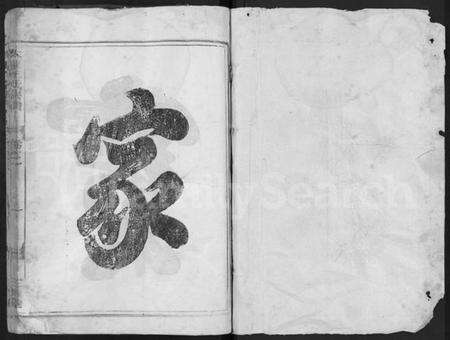 家
FamilySearch